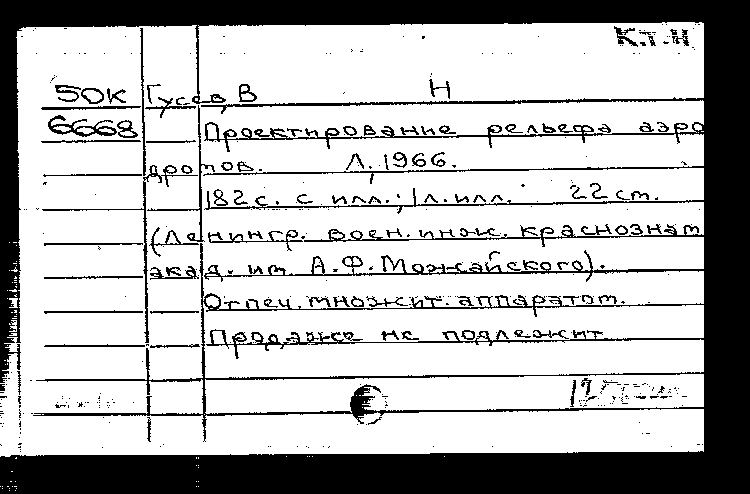 К.т.Н
50К Гусев, В Н
6668 Проектирование рельефа аэро
дромов. Л., 1966.
182 с. с илл.; 1 л. илл. 22 см.
(Ленингр. воен. инж. краснознам
акад. им. А.Ф. Можайского).
Отпеч. множит. аппаратом.
Продаже не подлежит